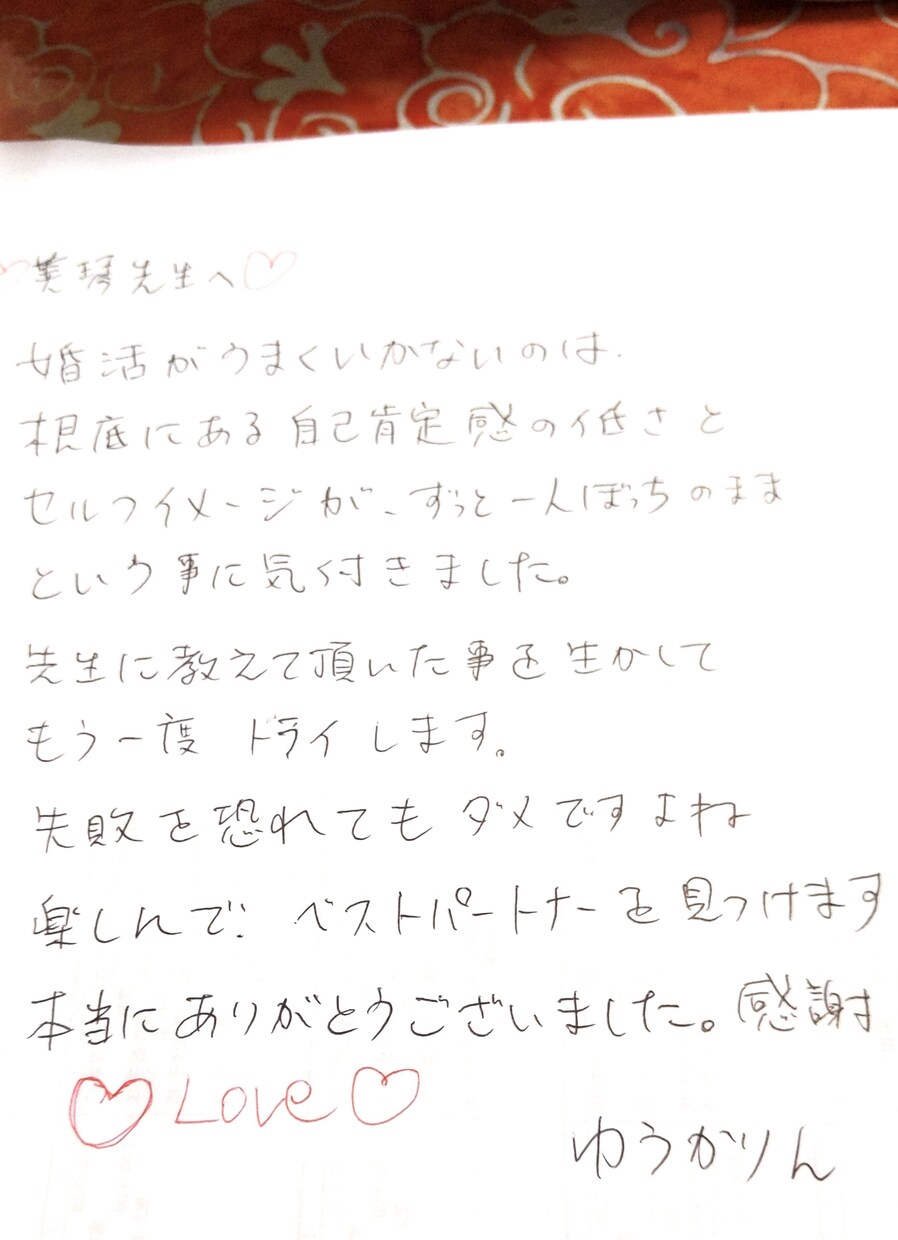 ♡美琴先生へ♡
婚活がうまくいかないのは、
根底にある自己肯定感の低さと
セルフイメージが、ずっと一人ぼっちのまま
という事に気付きました。
先生に教えて頂いた事を生かして
もう一度 トライします。
失敗を恐れてもダメですよね
楽しんで! ベストパートナーを見つけます
本当にありがとうございました。感謝
♡Love♡
ゆうかりん